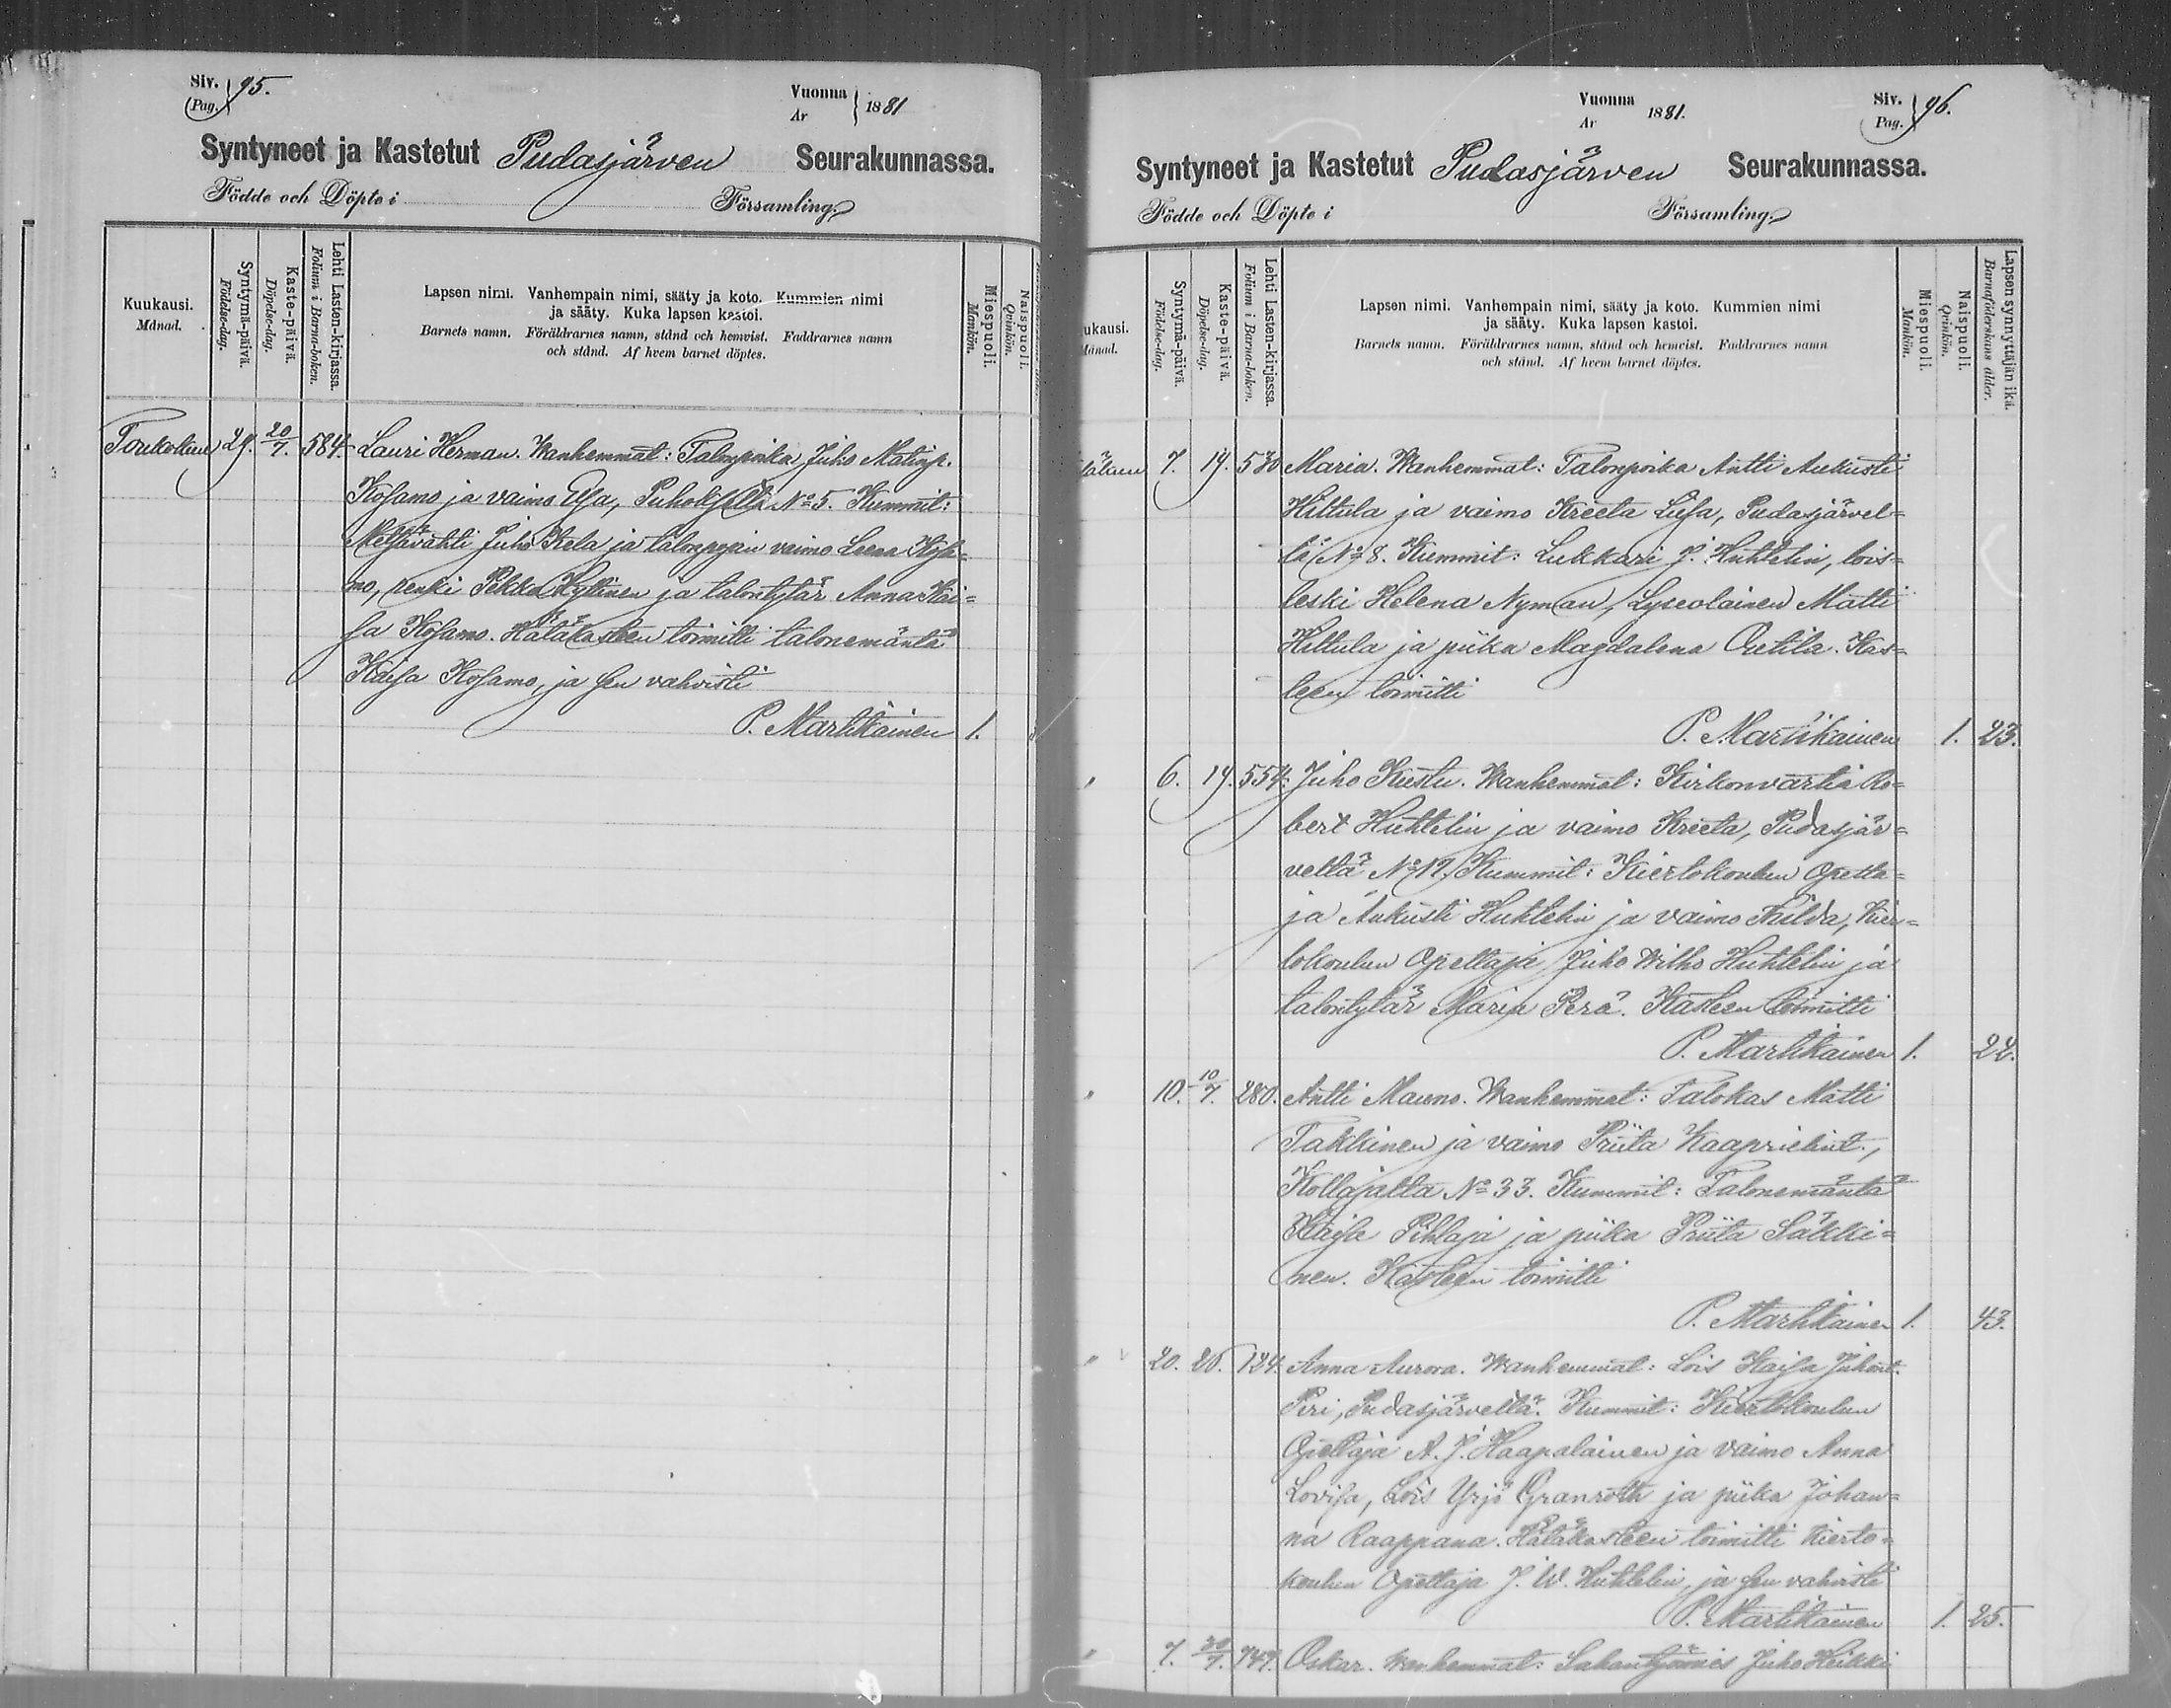 Siv. 95.
Pag.
Vuonna 1881
År
Syntyneet ja Kastetut Pudasjärven Seurakunnassa.
Födde och Döpte i Församling.
Kuukausi.
Månad.
Syntymä-päivä.
Födelse-dag.
Kaste-päivä.
Döpelse-dag.
Lehti Lasten-kirjassa.
Folium i Barna-boken.
Lapsen nimi. Vanhempain nimi, sääty ja koto. Kummien nimi
ja sääty. Kuka lapsen kastoi.
Barnets namn. Föräldrarnes namn, stånd och hemvist. Faddrarnes namn
och stånd. Af hvem barnet döptes.
Miespuoli.
Mankön.
Naispuoli.
Qvinkön.
Toukokuu 29. 20/7. 584. Lauri Herman. Wanhemmat: Talonpoika Juho Matinp.
Kosamo ja vaimo Elsa, Puhoksella No 5. Kummit:
Metsävahti Juho Kela ja talonpojan vaimo Leena Kosa=
mo, renki Pekka Hyttinen ja talontytär Anna Kai=
sa Kosamo. Hätäkasteen toimitti talonemäntä
Kaisa Kosamo, ja sen vahvisti
P. Martikainen 1.
Vuonna 1881.
År
Siv. 96.
Pag.
Syntyneet ja Kastetut Pudasjärven Seurakunnassa.
Födde och Döpte i Församling.
ukausi.
Månad.
Syntymä-päivä.
Födelse-dag.
Kaste-päivä.
Döpelse-dag.
Lehti Lasten-kirjassa.
Folium i Barna-boken.
Lapsen nimi. Vanhempain nimi, sääty ja koto. Kummien nimi
ja sääty. Kuka lapsen kastoi.
Barnets namn. Föräldrarnes namn, stånd och hemvist. Faddrarnes namn
och stånd. Af hvem barnet döptes.
Miespuoli.
Mankön.
Naispuoli.
Qvinkön.
Lapsen synnyttäjän ikä.
Barnaföderskans ålder.
täkuu 7. 19. 530 Maria. Wanhemmat: Talonpoika Antti Aukusti
Hiltula ja vaimo Kreeta Liisa, Pudasjärvel=
tä No 8. Kummit: Lukkari J. Huhtelin, lois=
leski Helena Nyman, Lyseolainen Matti
Hiltula ja piika Magdalena Outila. Kas=
teen toimitti
P. Martikainen 1. 23.
" 6. 19. 554. Juho Kustu. Wanhemmat: Kirkonvartia Ro=
bert Huhtelin ja vaimo Kreeta, Pudasjär=
veltä No 12. Kummit: Kiertokoulun Opetta=
ja Aukusti Huhtelin ja vaimo Hilda, Kier=
tokoulun Opettaja Juho Wilho Huhtelin ja
talontytär Maria Perä. Kasteen toimitti
P. Martikainen 1. 24.
" 10. 10/7. 280. Antti Mauno. Wanhemmat: Talokas Matti
Takkinen ja vaimo Priita Kaaprielint.,
Kollajalta No 33. Kummit: Talonemäntä
Kaisa Pihlaja ja piika Priita Säkki=
nen. Kasteen toimitti
P. Martikainen 1. 43.
" 20. 26. 124. Anna Aurora. Wanhemmat: Lois Kaisa Juhont.
Piri, Pudasjärveltä. Kummit: Kiertokoulun
Opettaja A. J. Haapalainen ja vaimo Anna
Lovisa, Lois Yrjö Granroth ja piika Johan=
na Raappana. Hätäkasteen toimitti Kierto=
koulun Opettaja J. W. Huhtelin, ja sen vahvisti
P. Martikainen 1. 25.
" 7. 30/7. 747. Oskar. Wanhemmat: Sahantyömies Juho Heikki